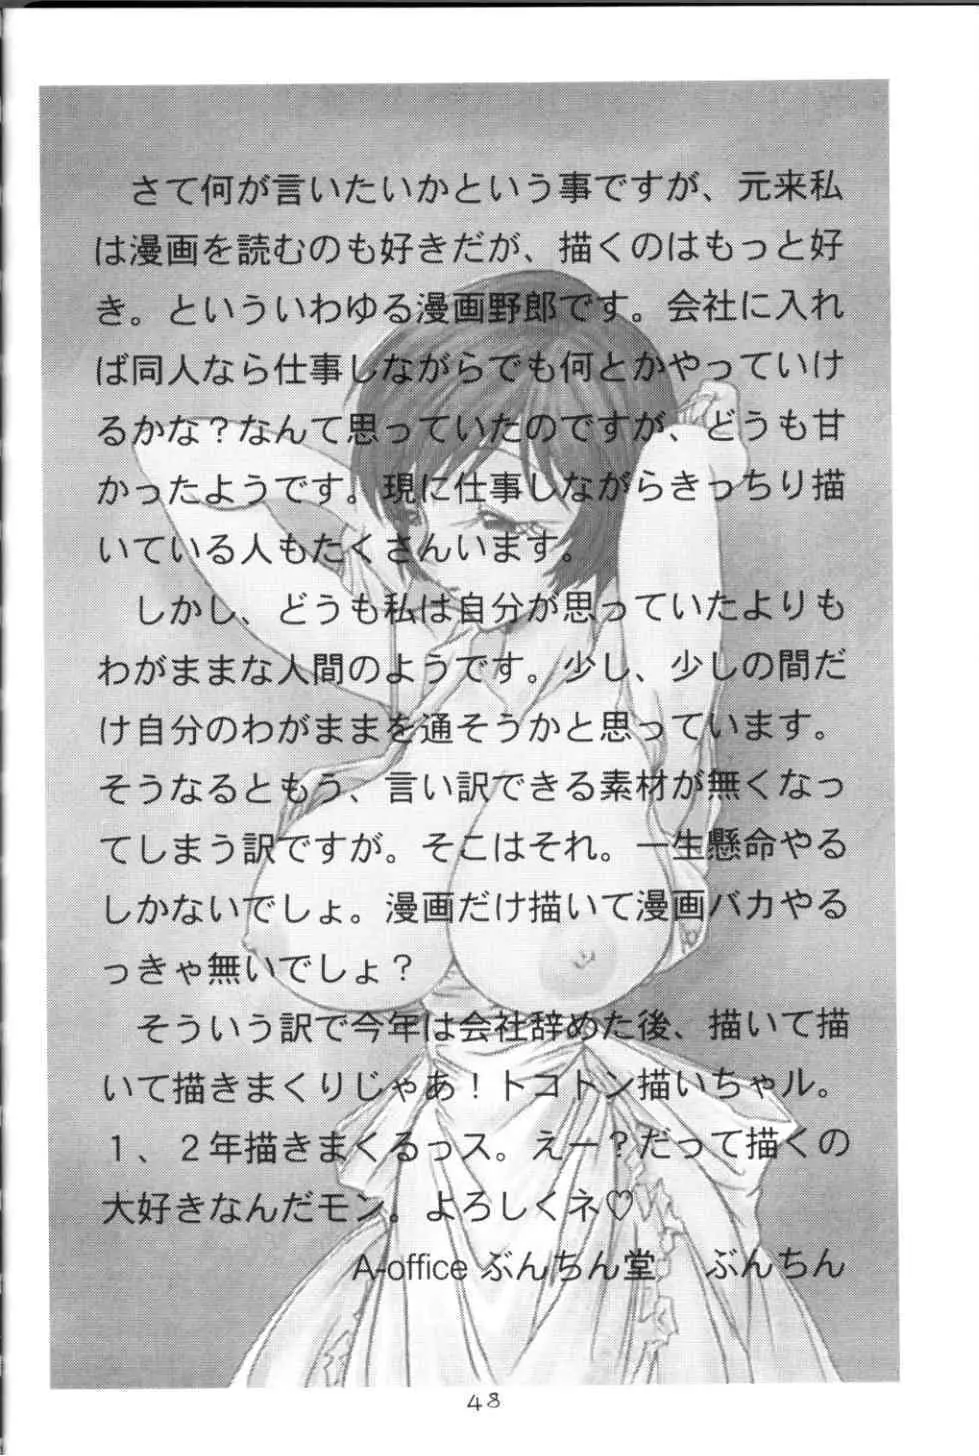 さて何が言いたいかという事ですが、元来私
は漫画を読むのも好きだが、描くのはもっと好
き。といういわゆる漫画野郎です。会社に入れ
ば同人なら仕事しながらでも何とかやっていけ
るかな？なんて思っていたのですが、どうも甘
かったようです。現に仕事しながらきっちり描
いている人もたくさんいます。
しかし、どうも私は自分が思っていたよりも
わがままな人間のようです。少し、少しの間だ
け自分のわがままを通そうかと思っています。
そうなるともう、言い訳できる素材が無くなっ
てしまう訳ですが。そこはそれ。一生懸命やる
しかないでしょ。漫画だけ描いて漫画バカやる
っきゃ無いでしょ？
そういう訳で今年は会社辞めた後、描いて描
いて描きまくりじゃあ！トコトン描いちゃル。
１、２年描きまくるっス。えー？だって描くの
大好きなんだモン。よろしくネ♡
A-office ぶんちん堂　ぶんちん
48